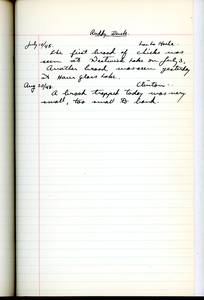 Ruddy Duck.
July 14/48. Lac la Hache.
The first brood of chicks was
seen at Westwick Lake on July 3,
Another brood was seen yesterday
at Hour Glass Lake.
Aug 20/48. Clinton.
A brood trapped today was very
small, too small to band.